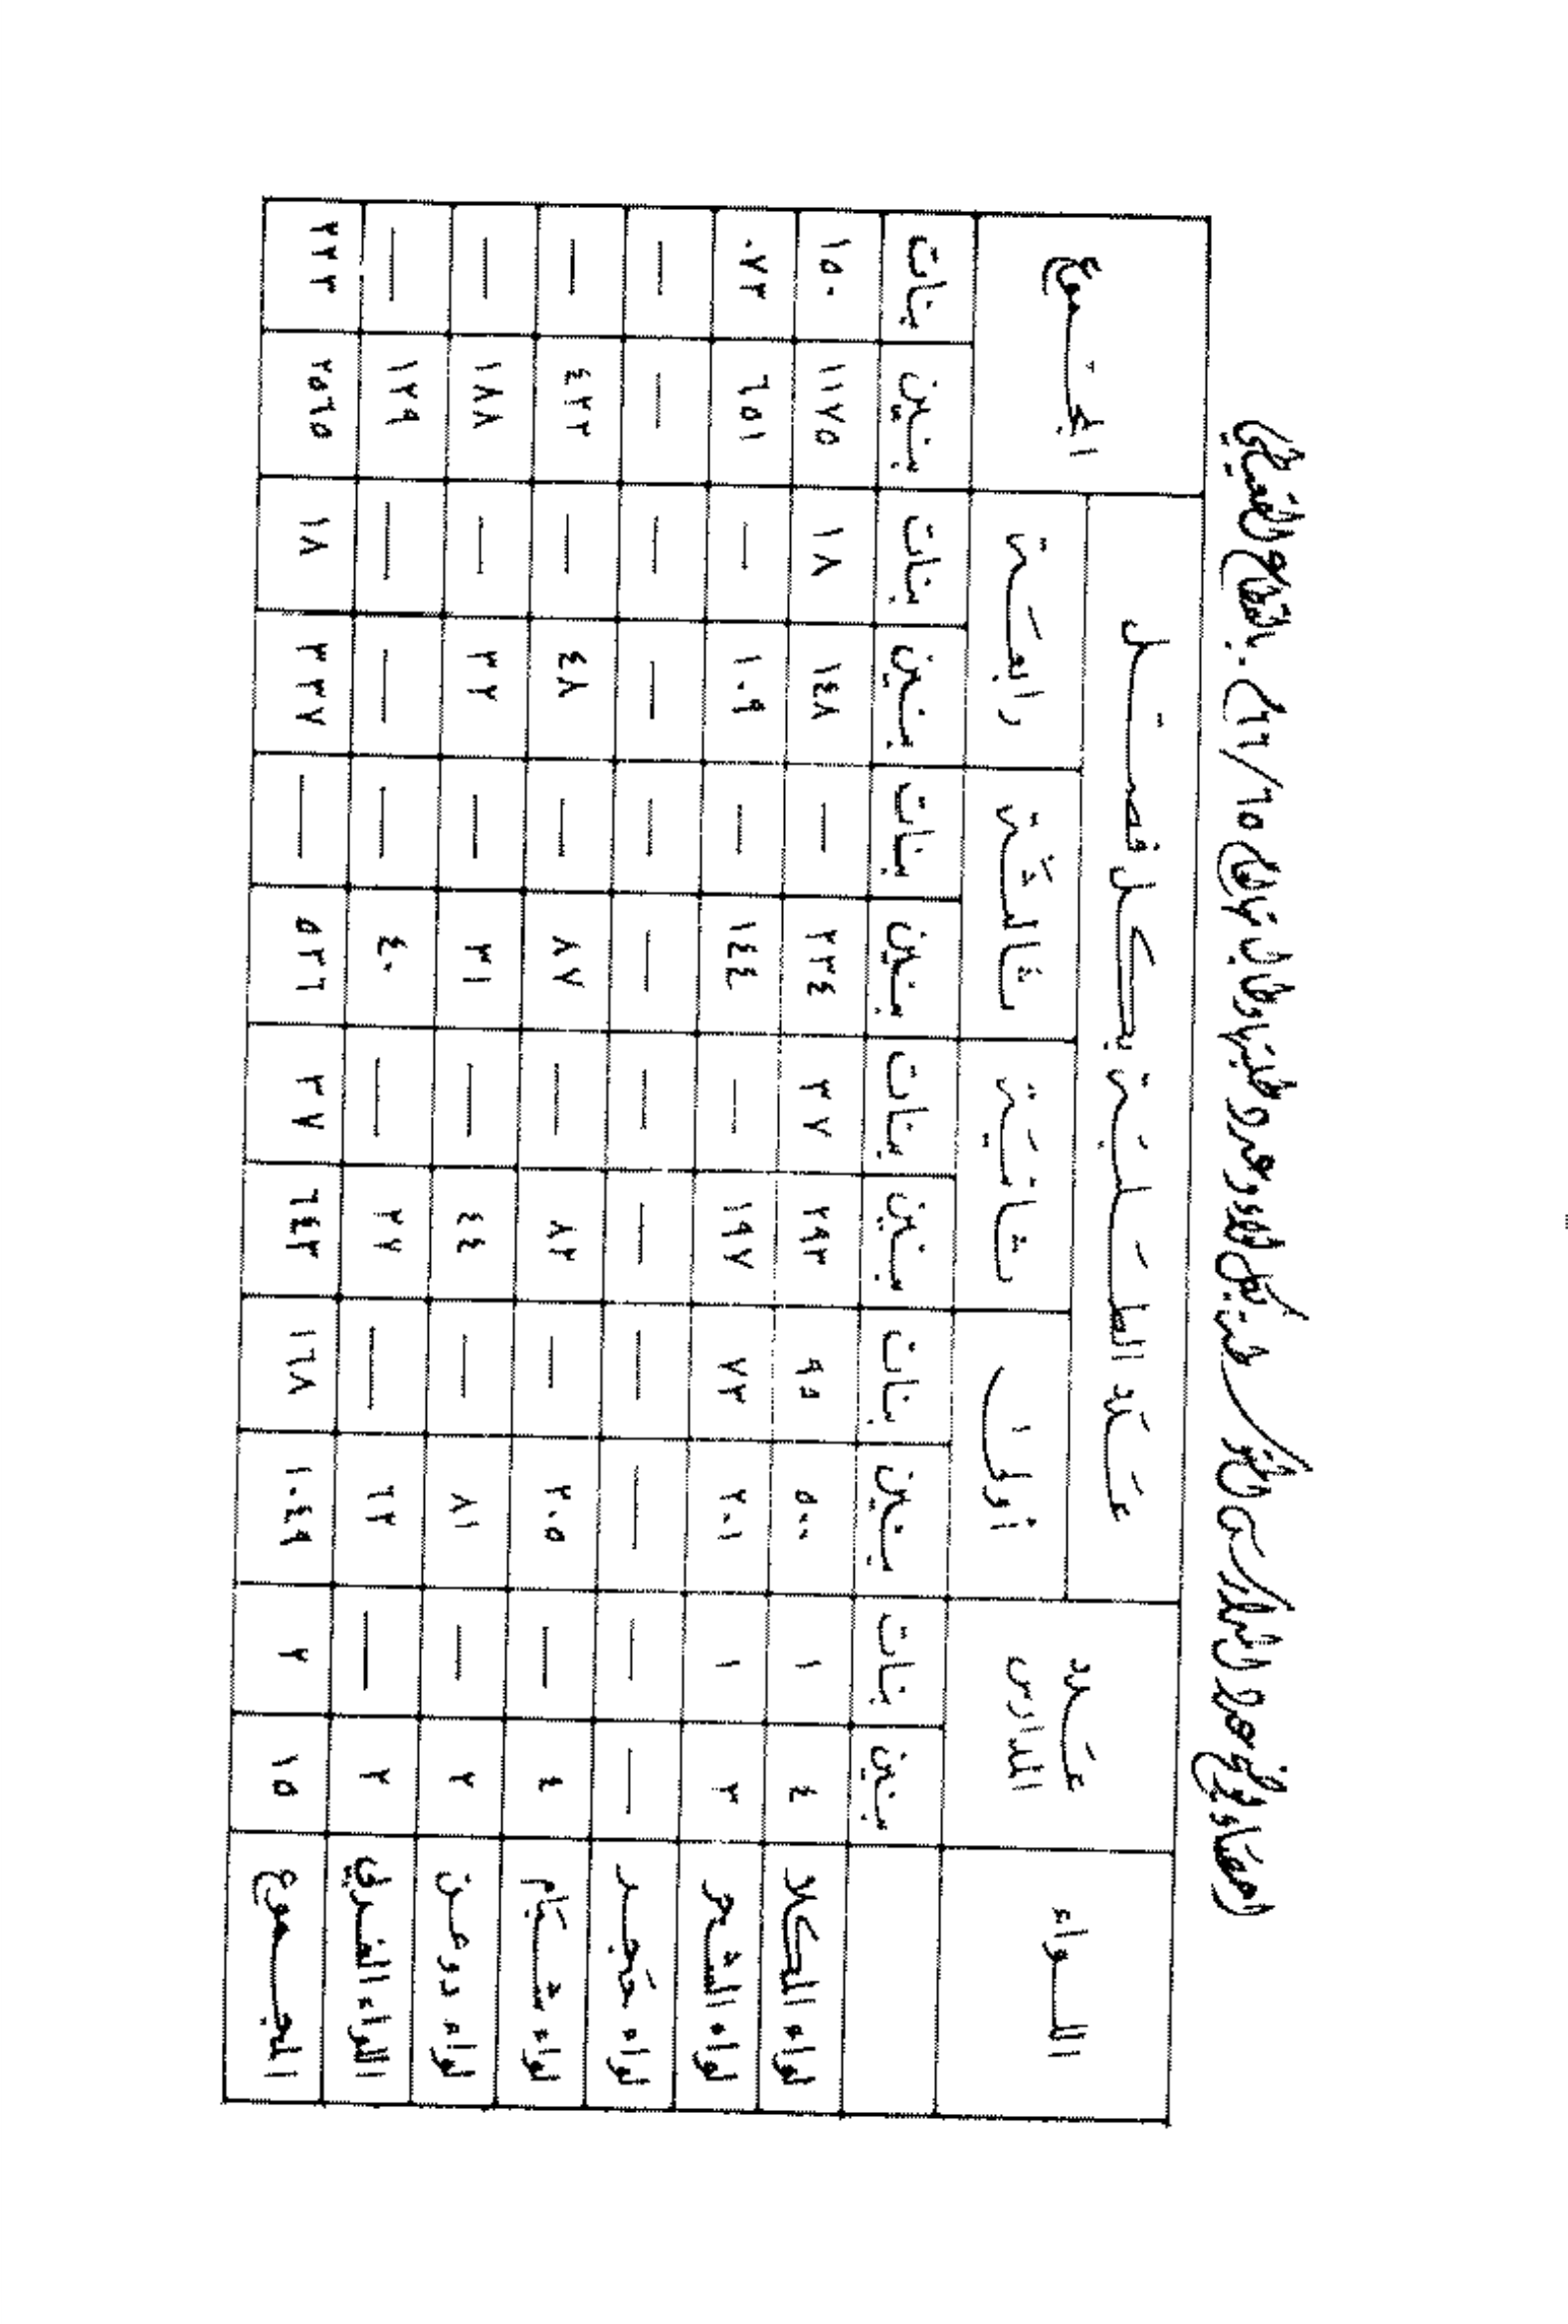 إحصاء يوضح عدد المدارس وعدد طلبتها وطالباتها ٦٥/٦٦م
اللواء عدد المدارس عدد الطلبة بكل فصل المجموع
أولى ثانية ثالثة رابعة
بنين بنات بنين بنات بنين بنات بنين بنات بنين بنات بنين بنات
لواء المكلا ٤ ١ ٥٠٠ ٩٥ ٢٩٣ ٣٧ ٢٣٤ — ١٤٨ ١٨ ١١٧٥ ١٥٠
لواء الشحر ٣ ١ ٢٠١ ٧٣ ١٩٧ — ١٤٤ — ١٠٩ — ٦٥١ ٠٧٣
لواء حجر — — — — — — — — — — — —
لواء شبام ٤ — ٢٠٥ — ٨٢ — ٨٧ — ٤٨ — ٤٢٢ —
لواء دوعن ٢ — ٨١ — ٤٤ — ٣١ — ٣٢ — ١٨٨ —
اللواء الغربي ٢ — ٦٢ — ٢٧ — ٤٠ — — — ١٢٩ —
المجموع ١٥ ٢ ١٠٤٩ ١٦٨ ٦٤٣ ٣٧ ٥٣٦ — ٣٣٧ ١٨ ٢٥٦٥ ٢٢٣